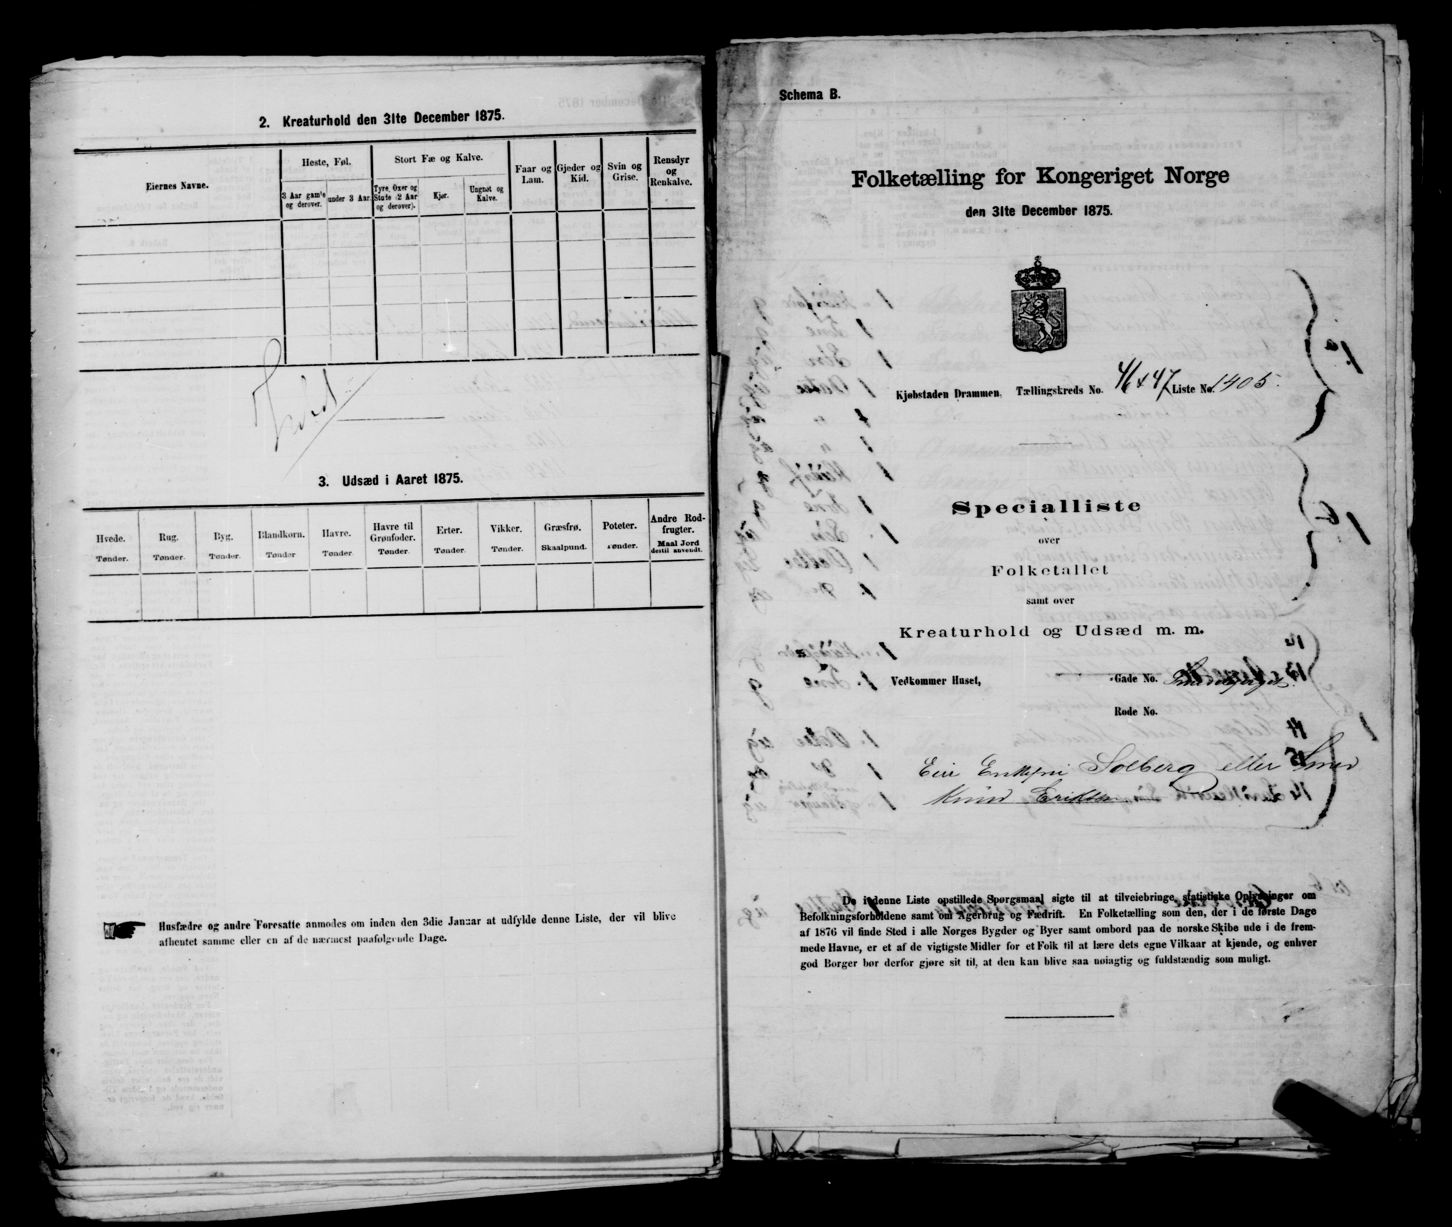 2. Kreaturhold den 31te December 1875.
Eiernes Navne.
Heste, Føl.
Stort Fæ og Kalve.
Faar og Lam.
Gjeder og Kid.
Svin og Grise.
Rensdyr og Renkalve.
3 Aar gamle og derover.
under 3 Aar.
Tyre, Oxer og Stude (2 Aar og derover).
Kjør.
Ungnøt og Kalve.
3. Udsæd i Aaret 1875.
Hvede. Tønder.
Rug. Tønder.
Byg. Tønder.
Blandkorn. Tønder
Havre. Tønder.
Havre til Grønfoder. Tønder.
Erter. Tønder.
Vikker. Tønder.
Græsfrø. Skaalpund.
Poteter. Tønder.
Andre Rodfrugter. Maal Jord dertil anvendt.
Husfædre og andre Foresatte anmodes om inden den 3die Januar at udfylde denne Liste, der vil blive
afhentet samme eller en af de nærmest paafølgende Dage.
Schema B.
Folketælling for Kongeriget Norge
den 31te December 1875.
Kjøbstaden Drammen. Tællingskreds No. 46 & 47 Liste No. 1405.
Specialliste
over
Folketallet
samt over
Kreaturhold og Udsæd m. m.
Vedkommer Huset, Gade No.
Rode No.
Solberg eller
De i denne Liste opstillede Spørgsmaal sigte til at tilveiebringe statistiske Oplysninger om
Befolkningsforholdene samt om Agerbrug og Fædrift. En Folketælling som den, der i de første Dage
af 1876 vil finde Sted i alle Norges Bygder og Byer samt ombord paa de norske Skibe ude i de frem-
mede Havne, er et af de vigtigste Midler for et Folk til at lære dets egne Vilkaar at kjende, og enhver
god Borger bør derfor gjøre sit til, at den kan blive saa nøiagtig og fuldstændig som muligt.